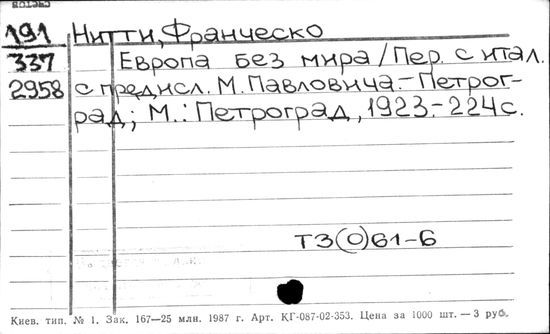 191 Нитти, Франческо
337 Европа без мира / Пер. с итал.
2958 с предисл. М. Павловича.- Петрог-
рад; М.: Петроград, 1923.- 224с.
Т3(0)61-6
Киев. тип. № 1. Зак. 167—25 млн. 1987 г. Арт. КГ-087-02-353. Цена за 1000 шт. — 3 руб.